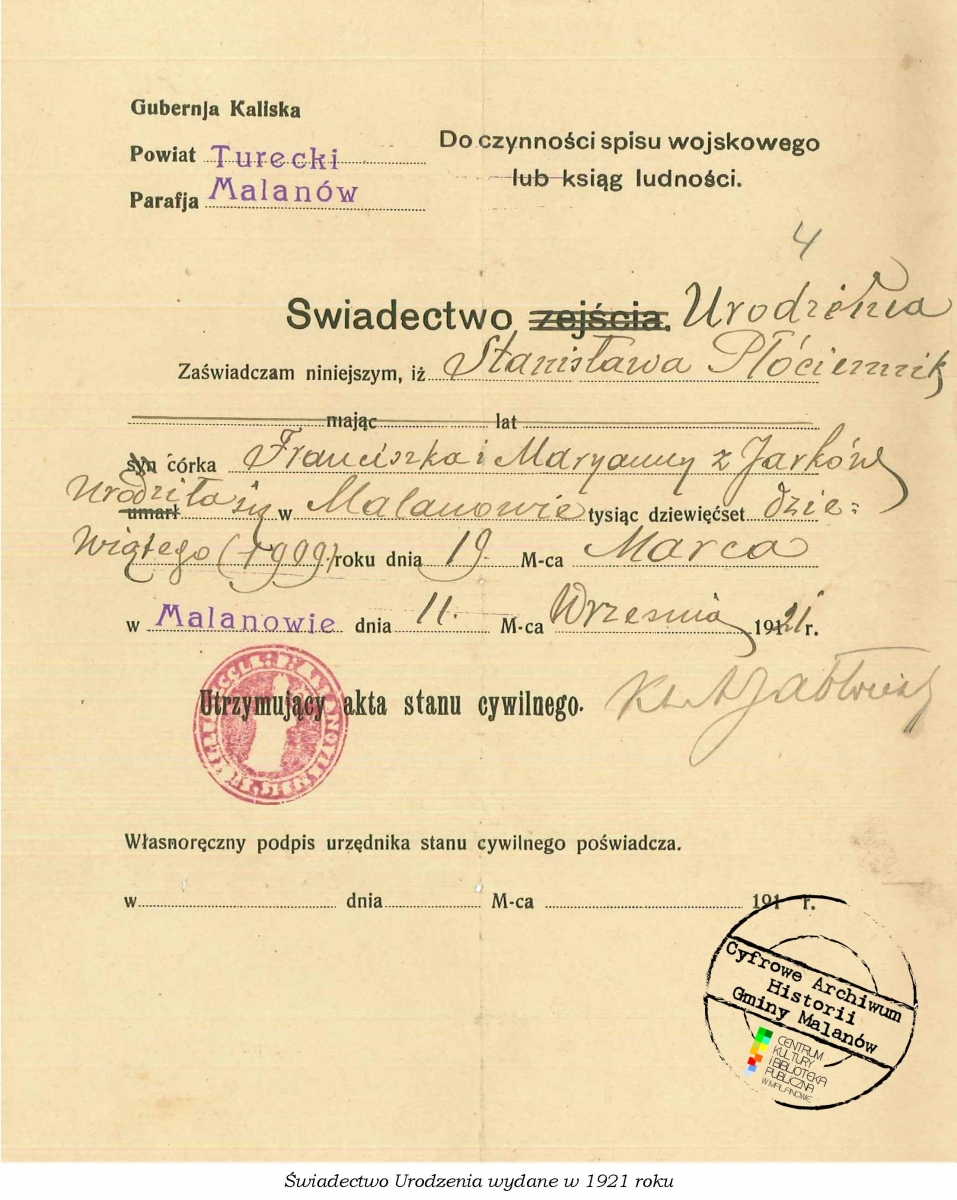 Gubernja Kaliska
Powiat Turecki
Parafja Malanów
Do czynności spisu wojskowego
lub ksiąg ludności.
4
Swiadectwo zejścia. Urodzenia
Zaświadczam niniejszym, iż Stanisława Płóciennik
mając lat
syn córka Franciszka i Maryanny z Jarków
urodziła się umarł w Malanowie tysiąc dziewięćset dzie=
wiątego (1909) roku dnia 19 M-ca Marca
w Malanowie dnia 11. M-ca Wrzesnia 1921 r.
Utrzymujący akta stanu cywilnego.
Własnoręczny podpis urzędnika stanu cywilnego poświadcza.
w dnia M-ca 191 r.
Cyfrowe Archiwum
Historii
Gminy Malanów
CENTRUM
KULTURY
I BIBLIOTEKA
PUBLICZNA
W MALANOWIE
Świadectwo Urodzenia wydane w 1921 roku